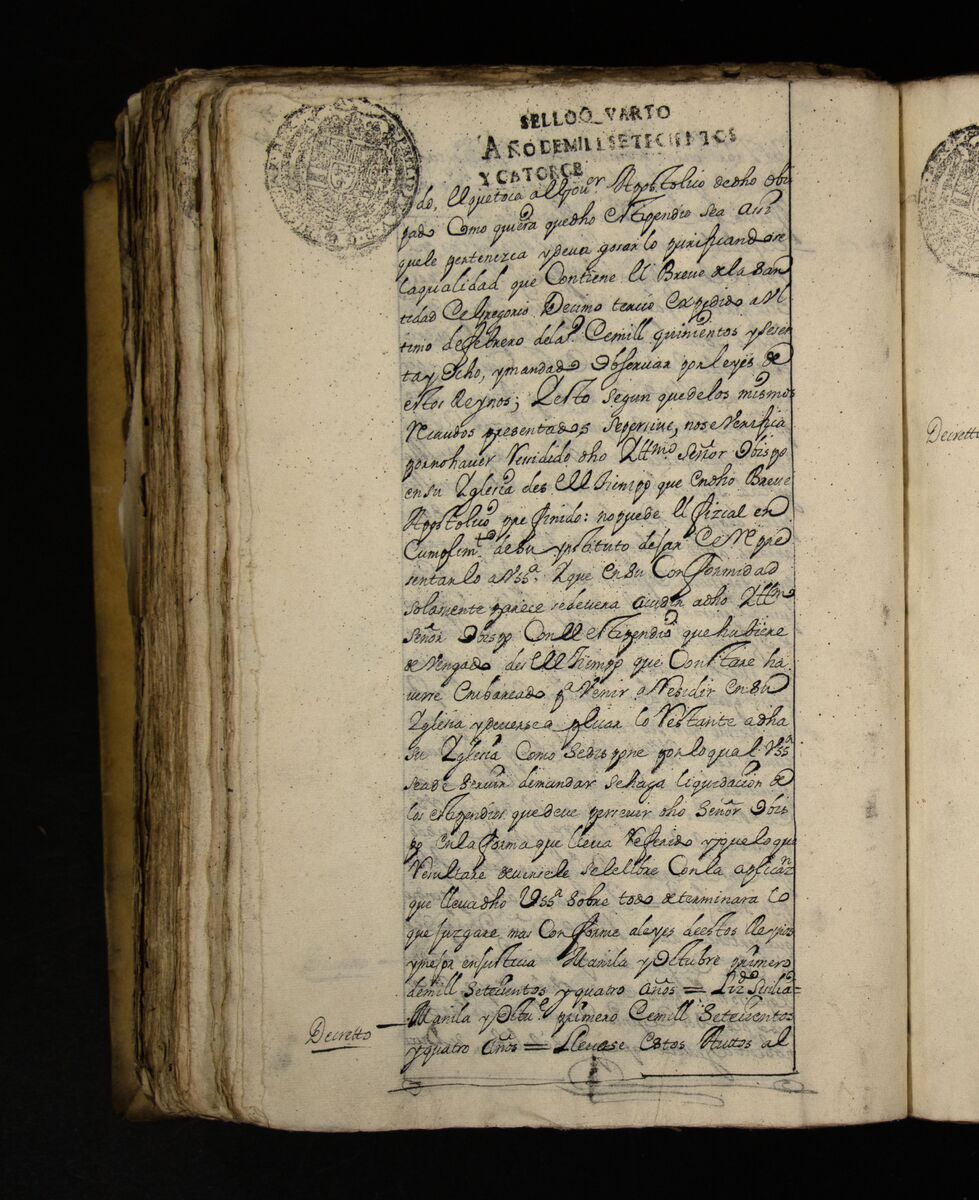 SELLOQVARTO
AÑODEMILLSETECIENTOS
YCATORCE
do, El quetoca al Gouer Appostolico dedho obis
pado Como quiera quedho estipendio sea aun
quele pertenezca ydeua gosarlo purificandose
laqualidad que Contiene El Breue dela San
tidad Ce Gregorio Decimo tercio expedido a Vl
timo de febrero dela.º Cemill quinientos ysesen
tay Ocho, ymandado Obseruar porleyes de
estos Reynos; Yesto segun quedelos mismos
Recaudos presentados sepersiue, nose Verifica
pornohauer Residido dho Yttmo Señor Obispo
ensu Yglesia des El tiempo que endho Breue
Appostolico prefinido: nopuede El fizcal en
Cumplimto desu ynstituto dejar Ce Repre
sentarlo aVssª. Yque en su Conformidad
solamente parece sedeuera acudir adho Yttmo
Señor Obispo Con El estipendio que hubiere
deVengado des El tiempo que Constare ha
uerse embarcado pª Venir a Residir en su
Yglesia ydeuerse aplicar lo Restante adha
su Yglesia Como sedispone porloqual Vssª
seade seruir demandar sehaga liquidacion de
los estipendios quedeue perseuir dho Señor Obis
po enla forma que lleua Referido yqueloque
Resultare deuersele selelibre Conla aplicazn
que lleuadho Vssª sobre todo determinara lo
que juzgare mas Conforme aleyes deestos Reynos
ymejor enjusticia Manila yOctubre primero
demill Setecientos yquatro años = Lizdo Sicilia =
Decretto
Manila yOctue primero Cemill Setecientos
yquatro años = Lleuese estos Auttos al
Decretto